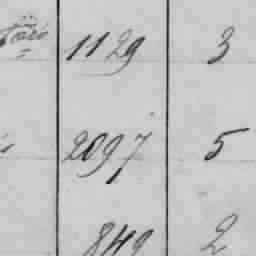 1129 3
2097 5
849 2